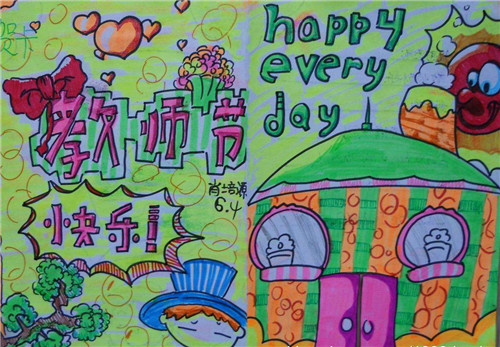 贺卡
教师节
快乐!
肖培源
6.4
happy
every
day